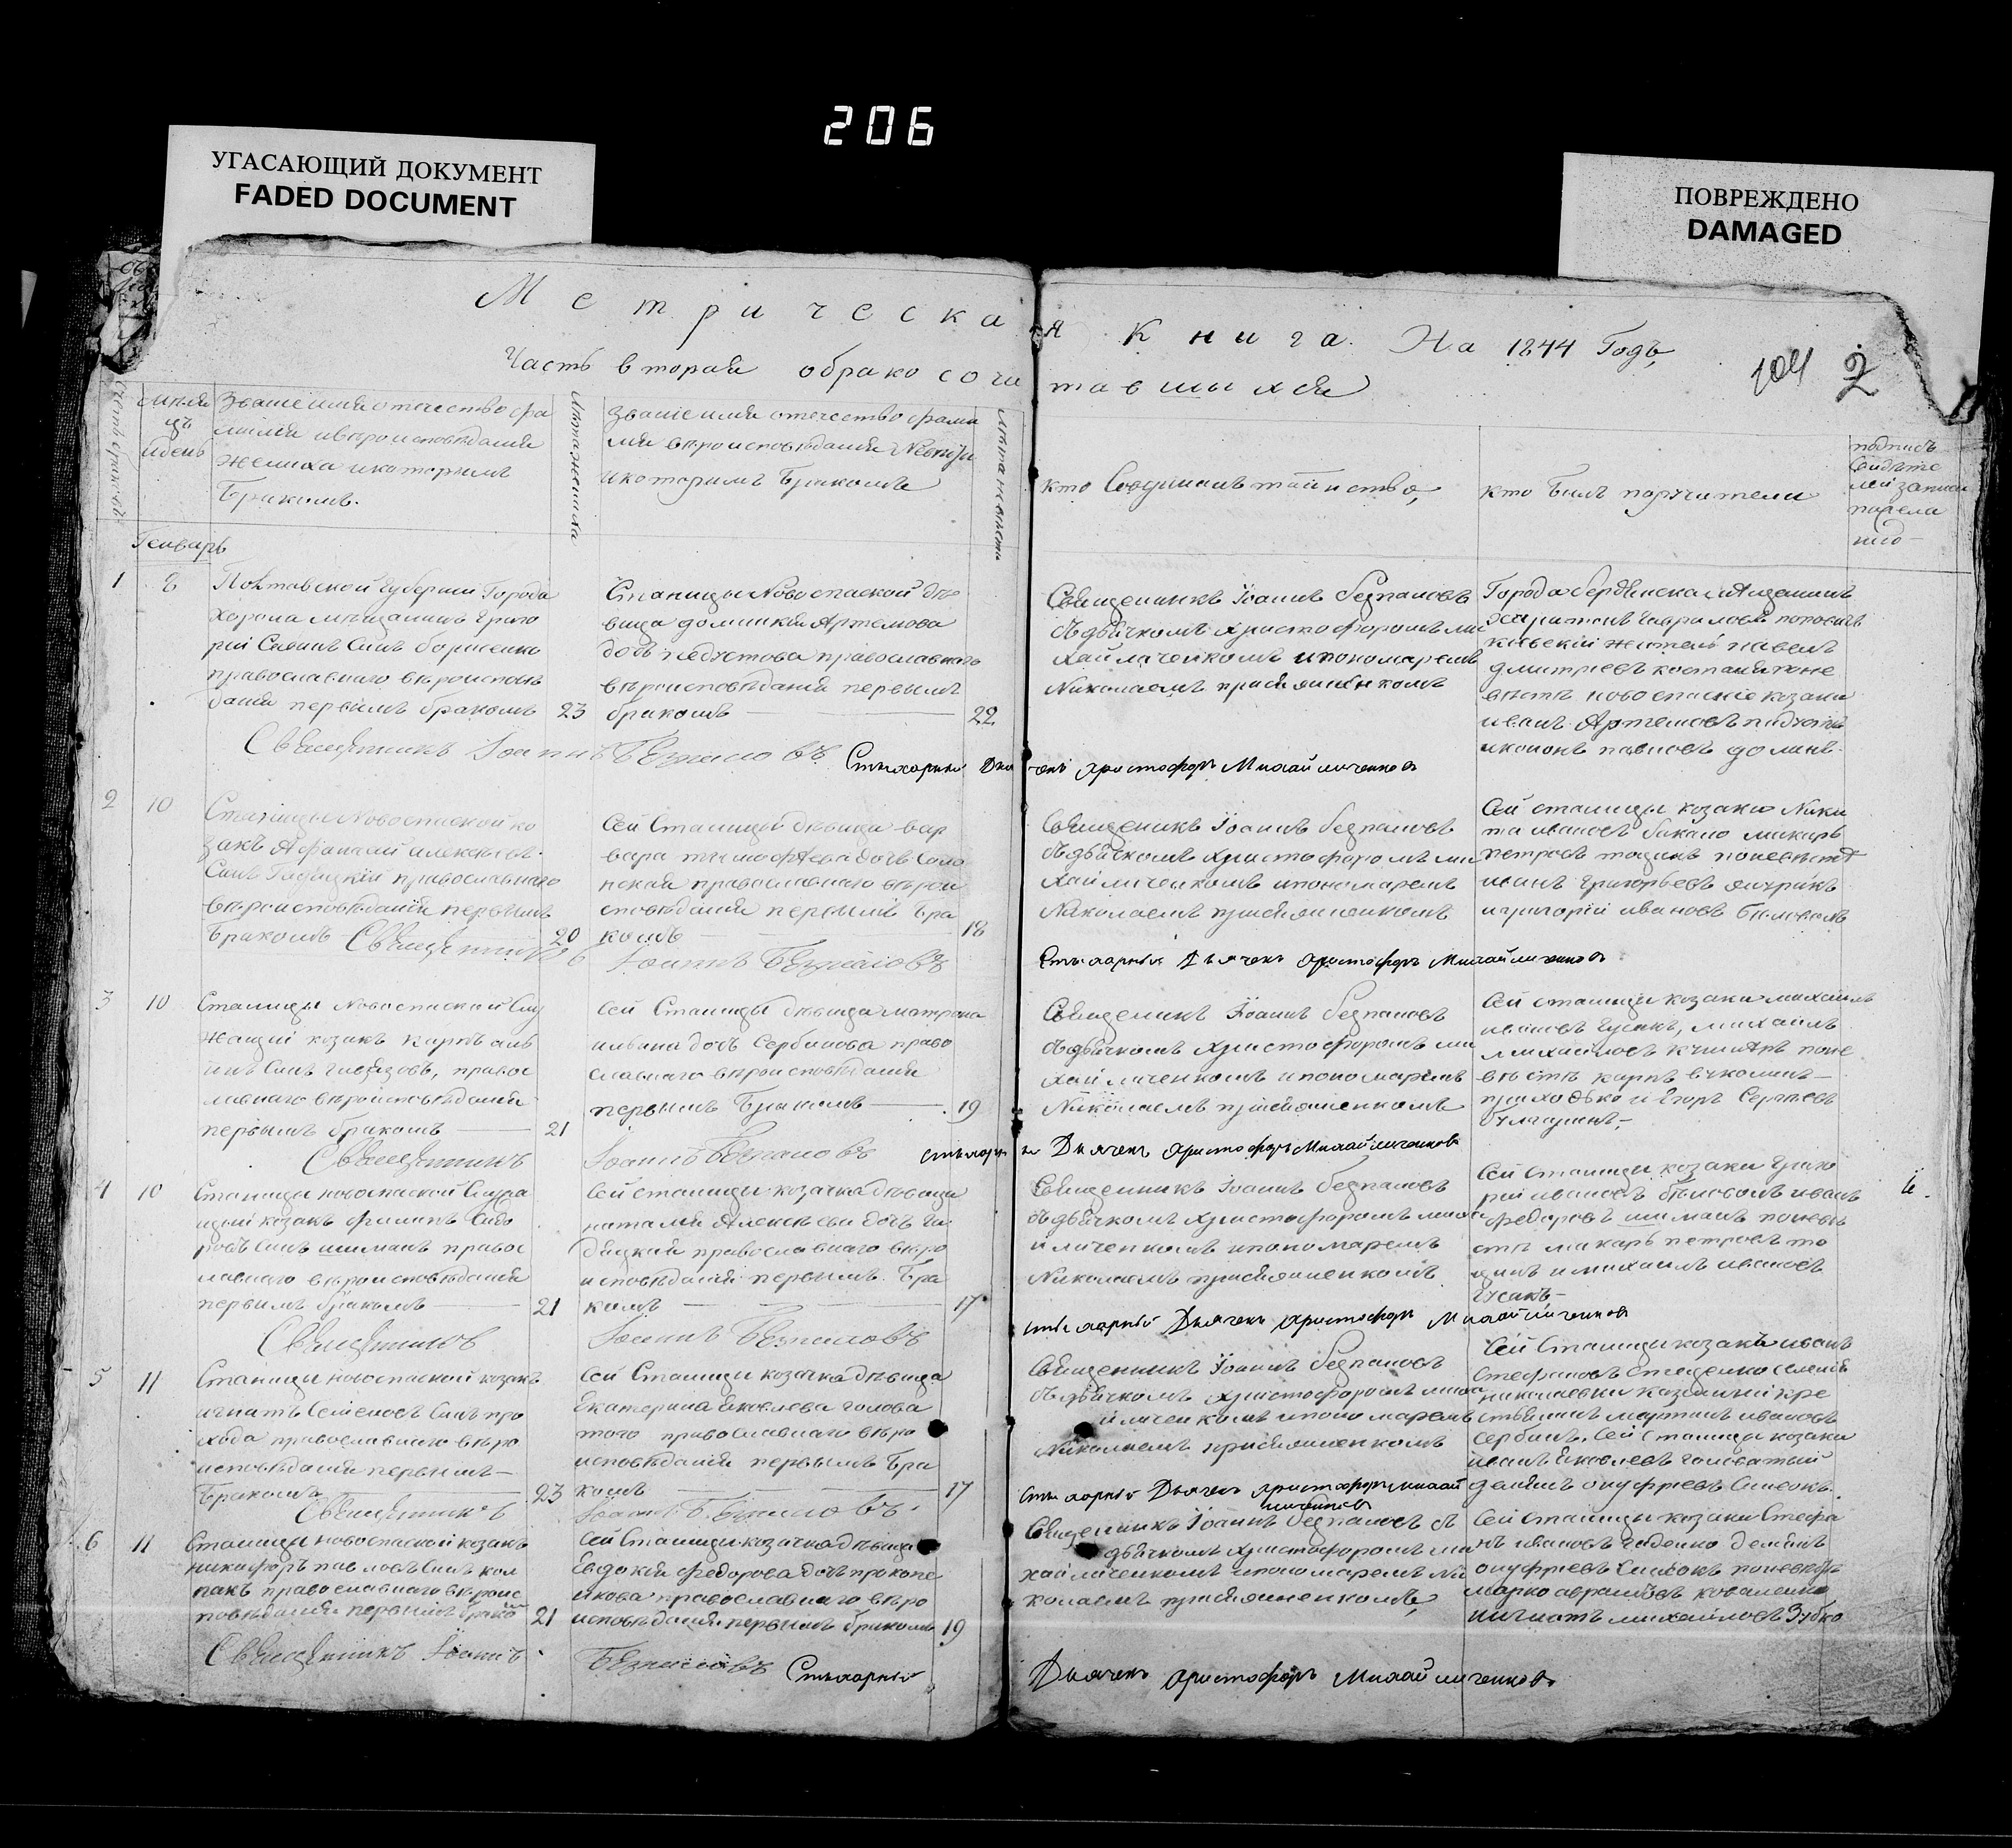 206
УГАСАЮЩИЙ ДОКУМЕНТ
FADED DOCUMENT
ПОВРЕЖДЕНО
DAMAGED
Метрическая книга. На 1844 Годъ,
Часть вторая обракосочитавшыхся
104 2
Счетъ браковъ
мѣся
цъ
идень
Званіе имя отечество фа
милия ивѣроисповѣдания
жениха икоторымъ
Бракомъ.
Лѣта жениха
Званіе имя отечество фами
лия вѣроисповѣдания Невѣсты
икоторымъ Бракомъ
Лѣта невѣсты
кто Совершалъ таинство,
кто былъ поручители
подпись
Свидѣте
лей записи
Генварь
1
8
Полтавской Губерніи Города
Хорола мѣщанинъ Григо
рій Савинъ Сынъ борисенко
православнаго вѣроисповѣ
дания первымъ бракомъ
23
Станицы Новоспаской дѣ
вица Артемова
дочь православнаго
вѣроисповѣдания первымъ
бракомъ
22
Священникъ Іоаннъ безпаловъ
съдьячкомъ христофоромъ ми
хайличенкомъ ипономаремъ
Николаемъ
Города бердянска мещанинъ
Гавриловъ
жители павелъ
дмитріевъ
новоспаскіе козаки
иванъ Артемовъ
павловъ
Священникъ Іоаннъ Безпаловъ
Стихарный Дьячекъ христофоръ Михайличенковъ
2
10
Станицы Новоспаской ко
закъ Афанасій алексѣевъ
Сынъ Гадицкій православнаго
вѣроисповѣдания первымъ
бракомъ
20
Сей Станицы дѣвица вар
вара тимофѣева дочь
православнаго вѣрои
сповѣдания первымъ бра
комъ
18
Священикъ Іоаннъ безпаловъ
съдьячкомъ христофоромъ ми
хайличенкомъ ипономаремъ
Николаемъ
Сей станицы козаки Ники
та ивановъ бакало макаръ
петровъ поневѣстѣ
иванъ григорьевъ
игригорій ивановъ
Священникъ
Іоаннъ Безпаловъ
Стихарный Дьячекъ христофоръ Михайличенковъ
3
10
Станицы Новоспаской Слу
жащій козакъ карпъ
Сынъ правос
лавнаго вѣроисповѣдания
первымъ бракомъ
21
Сей Станицы дѣвица матрона
дочь Сербинова право
славнаго вѣроисповѣдания
первымъ бракомъ
19
Священикъ Іоаннъ безпаловъ
съдьячкомъ христофоромъ ми
хайличенкомъ ипономаремъ
Николаемъ
Сей станицы козаки михаилъ
ивановъ гусакъ, михаилъ
михайловъ поне
вѣстѣ карпъ
приходько и Егоръ Сергѣевъ
Священникъ
Іоаннъ Безпаловъ
Стихарный Дьячекъ христофоръ Михайличенковъ
4
10
Станицы новоспаской Служа
щій козакъ филипъ Сидо
ровъ Сынъ шиманъ правос
лавнаго вѣроисповѣдания
первымъ бракомъ
21
Сей станицы козачка дѣвица
наталия Алексѣева дочь га
дицкая православнаго вѣро
исповѣдания первымъ бра
комъ
17
Священникъ Іоаннъ безпаловъ
съдьячкомъ христофоромъ миха
йличенкомъ ипономаремъ
Николаемъ
Сей станицы козаки григо
рій ивановъ иванъ
федоровъ шиманъ поневѣ
стѣ макаръ петровъ
имихаилъ ивановъ
гусакъ
Священникъ
Іоаннъ Безпаловъ
стихарный Дьячекъ христофоръ Михайличенковъ
5
11
Станицы новоспаской козакъ
игнатъ Семеновъ Сынъ про
хода православнаго вѣро
исповѣдания первымъ
бракомъ
23
Сей Станицы козачка дѣвица
Екатерина Яковлева голова
того православнаго вѣро
исповѣдания первымъ бра
комъ
17
Священникъ Іоаннъ безпаловъ
съдьячкомъ христофоромъ миха
йличенкомъ ипономаремъ
Николаемъ
Сей Станицы козакъ иванъ
Стефановъ
мартинъ ивановъ
Сербинъ, Сей Станицы козаки
иванъ Яковлевъ головатый
демянъ онуфріевъ
Священникъ
Іоаннъ Безпаловъ
Стихарный Дьячекъ христофоръ михай
личенковъ
6
11
Станицы новоспаской козакъ
никифоръ павловъ Сынъ кол
пакъ православнаго вѣроис
повѣдания первымъ брако
21
Сей Станицы козачка дѣвица
Евдокія Федорова дочь прокопе
нкова православнаго вѣро
исповѣдания первымъ бракомъ
19
Священникъ Іоаннъ безпаловъ съ
дьячкомъ христофоромъ ми
хайличенкомъ ипономаремъ Ни
колаемъ
Сей Станицы козаки Стефа
нъ ивановъ демянъ
онуфріевъ поневѣстѣ
марко коваленко
иигнатъ михайловъ Зубко
Священникъ Іоаннъ
Безпаловъ Стихарный
Дьячекъ христофоръ Михайличенковъ